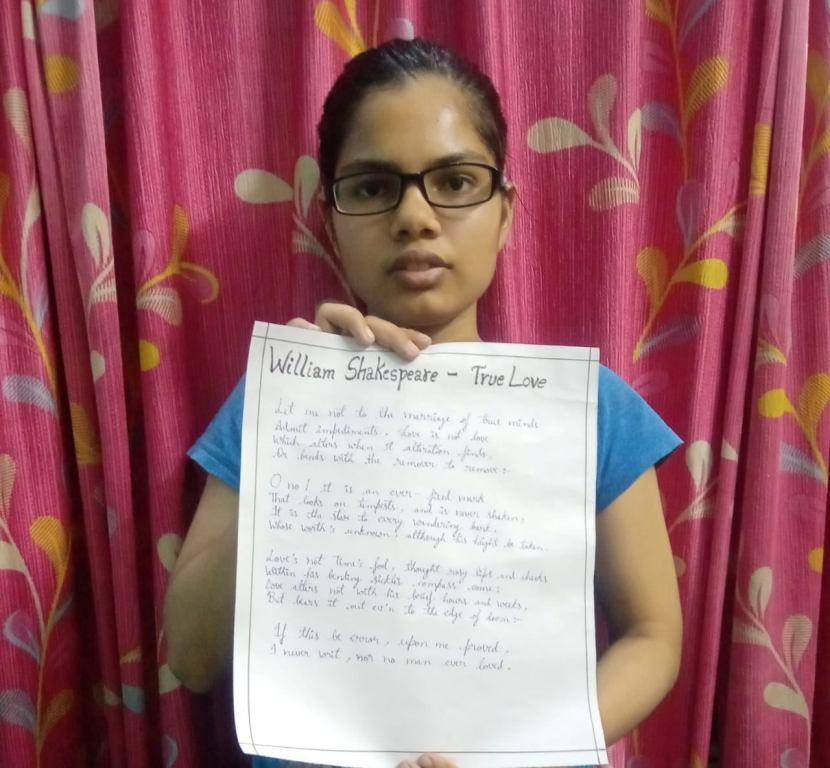 William Shakespeare - True Love
Let me not to the marriage of true minds
Admit impediments, Love is not love
Which alters when it alteration finds.
Or bends with the remover to remove:-
O no! it is an ever-fixed mark
That looks on tempests, and is never shaken;
It is the star to every wandering bark,
Whose worth's unknown, although his height be taken.
Love's not Time's fool, thought rosy lips and cheeks
Within his bending sickle's compass come;
Love alters not with his brief hours and weeks,
But bears it out ev'n to the edge of doom:-
If this be error, upon me proved,
I never writ, nor no man ever loved.